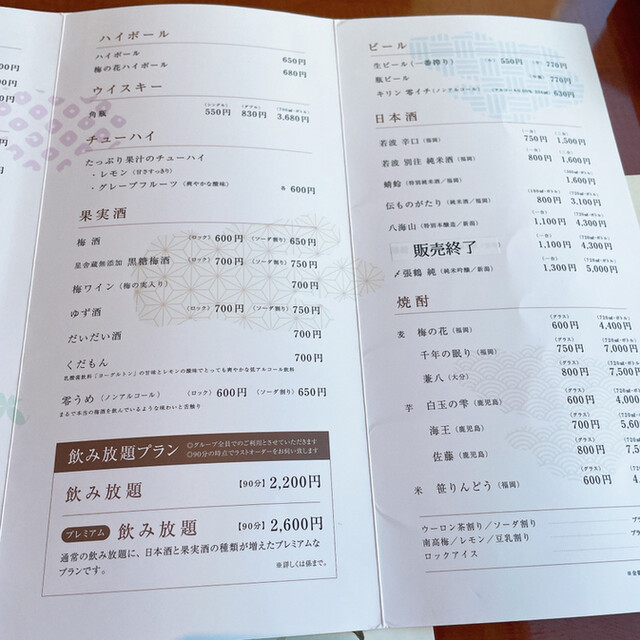 ハイボール
ハイボール 650円
梅の花ハイボール 680円
ウイスキー
(シングル) (ダブル) (720mlボトル)
角瓶 550円 830円 3,680円
チューハイ
たっぷり果汁のチューハイ
・レモン(甘さすっきり)
・グレープフルーツ(爽やかな酸味) 各 600円
果実酒
梅酒 (ロック) 600円 (ソーダ割り) 650円
星舎蔵無添加 黒糖梅酒 (ロック) 700円 (ソーダ割り) 750円
梅ワイン(梅の実入り) 700円
ゆず酒 (ロック) 700円 (ソーダ割り) 750円
だいだい酒 700円
くだもん 700円
乳酸菌飲料「ヨーグルトン」の甘味とレモンの酸味でとっても爽やかな低アルコール飲料
零うめ(ノンアルコール) (ロック) 600円 (ソーダ割り) 650円
まるで本当の梅酒を飲んでいるような味わいと舌触り
飲み放題プラン
◎グループ全員でのご利用とさせていただきます
◎90分の時点でラストオーダーをお伺い致します
飲み放題 【90分】 2,200円
プレミアム 飲み放題 【90分】 2,600円
通常の飲み放題に、日本酒と果実酒の種類が増えたプレミアムな
プランです。 ※詳しくは係まで。
ビール
生ビール(一番搾り) 550円 770円
瓶ビール 770円
キリン 零イチ(ノンアルコール) 630円
日本酒
(一合) (二合)
若波 辛口(福岡) 750円 1,500円
若波 別注 純米酒(福岡) 800円 1,600円
蜻蛉(特別純米酒/福岡) 1,600円
伝ものがたり(純米酒/福岡) 800円 3,100円
八海山(特別本醸造/新潟) 1,100円 4,300円
販売終了 1,100円 4,300円
〆張鶴 純(純米吟醸/新潟) 1,300円 5,000円
焼酎
(グラス) (720mlボトル)
麦 梅の花(福岡) 600円 4,400円
千年の眠り(福岡) 750円 7,000円
兼八(大分) 800円 7,500円
芋 白玉の雫(鹿児島) 600円
海王(鹿児島) 700円
佐藤(鹿児島) 800円
米 笹りんどう(福岡) 600円
ウーロン茶割り/ソーダ割り
南高梅/レモン/豆乳割り
ロックアイス